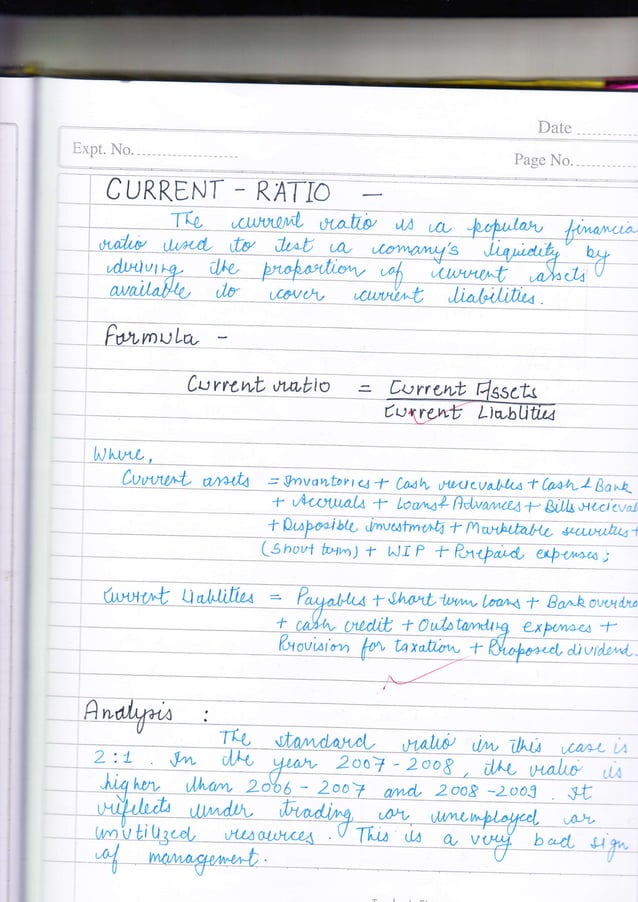 Date
Expt. No.
Page No.
CURRENT - RATIO -
The current ratio is a popular financia
ratio used to test a comany's liquidity by
deriving the proportion of current assets
available to cover current liabilities.
Formula -
Current ratio = Current Assets
Current Liablities
Where,
Current assets = Invantories + Cash recievables + Cash & Bank
+ Accruals + Loans & Advances + Bills recieval
+ Disposible investments + Marketable securities +
(Short term) + WIP + Prepaid expenses;
Current Liablities = Payables + Short term loans + Bank overdra
+ cash credit + Outstanding expenses +
Provision for taxation + Proposed dividend.
Analysis :
The standard ratio in this case is
2:1. In the year 2007-2008, the ratio is
higher than 2006-2007 and 2008-2009. It
reflects under trading or unemployed or
unutilized resources. This is a very bad sign
of management.